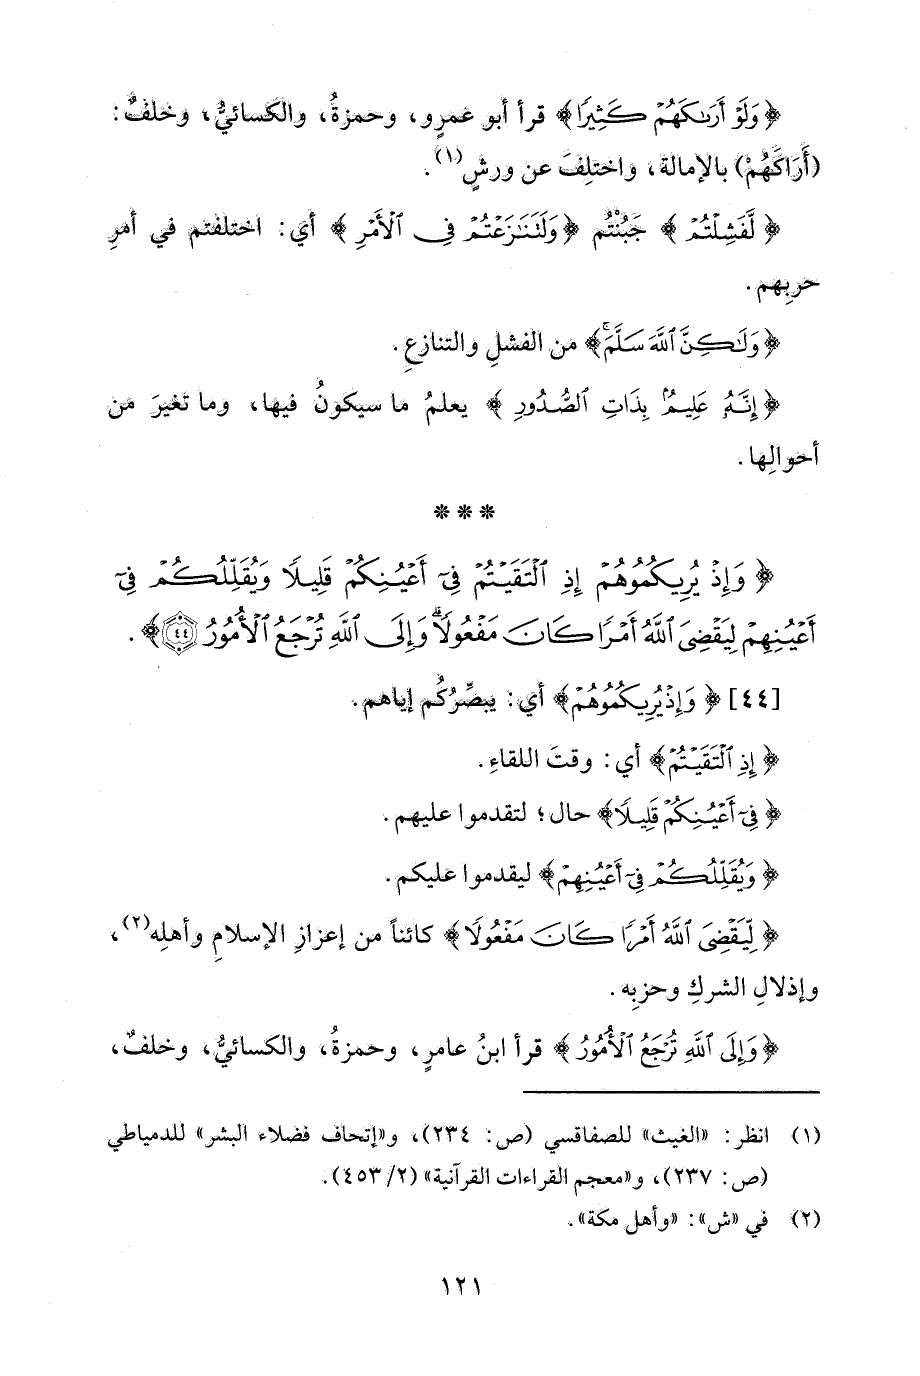 ﴿وَلَوْ أَرَىٰكَهُمْ كَثِيرًا﴾ قرأ أبو عمرٍو، وحمزةُ، والكسائيُّ، وخلفٌ:
(أَرَاكَهُمْ) بالإمالة، واختلِفَ عن ورشٍ(١).
﴿لَّفَشِلْتُمْ﴾ جَبُنْتُم ﴿وَلَتَنَٰزَعْتُمْ فِى ٱلْأَمْرِ﴾ أي: اختلفتم في أمرِ
حربِهم.
﴿وَلَٰكِنَّ ٱللَّهَ سَلَّمَ ۚ﴾ من الفشلِ والتنازعِ.
﴿إِنَّهُۥ عَلِيمٌۢ بِذَاتِ ٱلصُّدُورِ﴾ يعلمُ ما سيكونُ فيها، وما تغيرَ من
أحوالِها.
***
﴿وَإِذْ يُرِيكُمُوهُمْ إِذِ ٱلْتَقَيْتُمْ فِىٓ أَعْيُنِكُمْ قَلِيلًا وَيُقَلِّلُكُمْ فِىٓ
أَعْيُنِهِمْ لِيَقْضِىَ ٱللَّهُ أَمْرًا كَانَ مَفْعُولًا ۗ وَإِلَى ٱللَّهِ تُرْجَعُ ٱلْأُمُورُ ٤٤﴾.
[٤٤] ﴿وَإِذْ يُرِيكُمُوهُمْ﴾ أي: يبصِّرُكُم إياهم.
﴿إِذِ ٱلْتَقَيْتُمْ﴾ أي: وقتَ اللقاءِ.
﴿فِىٓ أَعْيُنِكُمْ قَلِيلًا﴾ حال؛ لتقدموا عليهم.
﴿وَيُقَلِّلُكُمْ فِىٓ أَعْيُنِهِمْ﴾ ليقدموا عليكم.
﴿لِّيَقْضِىَ ٱللَّهُ أَمْرًا كَانَ مَفْعُولًا﴾ كائناً من إعزازِ الإسلامِ وأهلِه(٢)،
وإذلالِ الشركِ وحزبِه.
﴿وَإِلَى ٱللَّهِ تُرْجَعُ ٱلْأُمُورُ﴾ قرأ ابنُ عامرٍ، وحمزةُ، والكسائيُّ، وخلفٌ،
(١) انظر: «الغيث» للصفاقسي (ص: ٢٣٤)، و«إتحاف فضلاء البشر» للدمياطي
(ص: ٢٣٧)، و«معجم القراءات القرآنية» (٢/ ٤٥٣).
(٢) في «ش»: «وأهل مكة».
١٢١